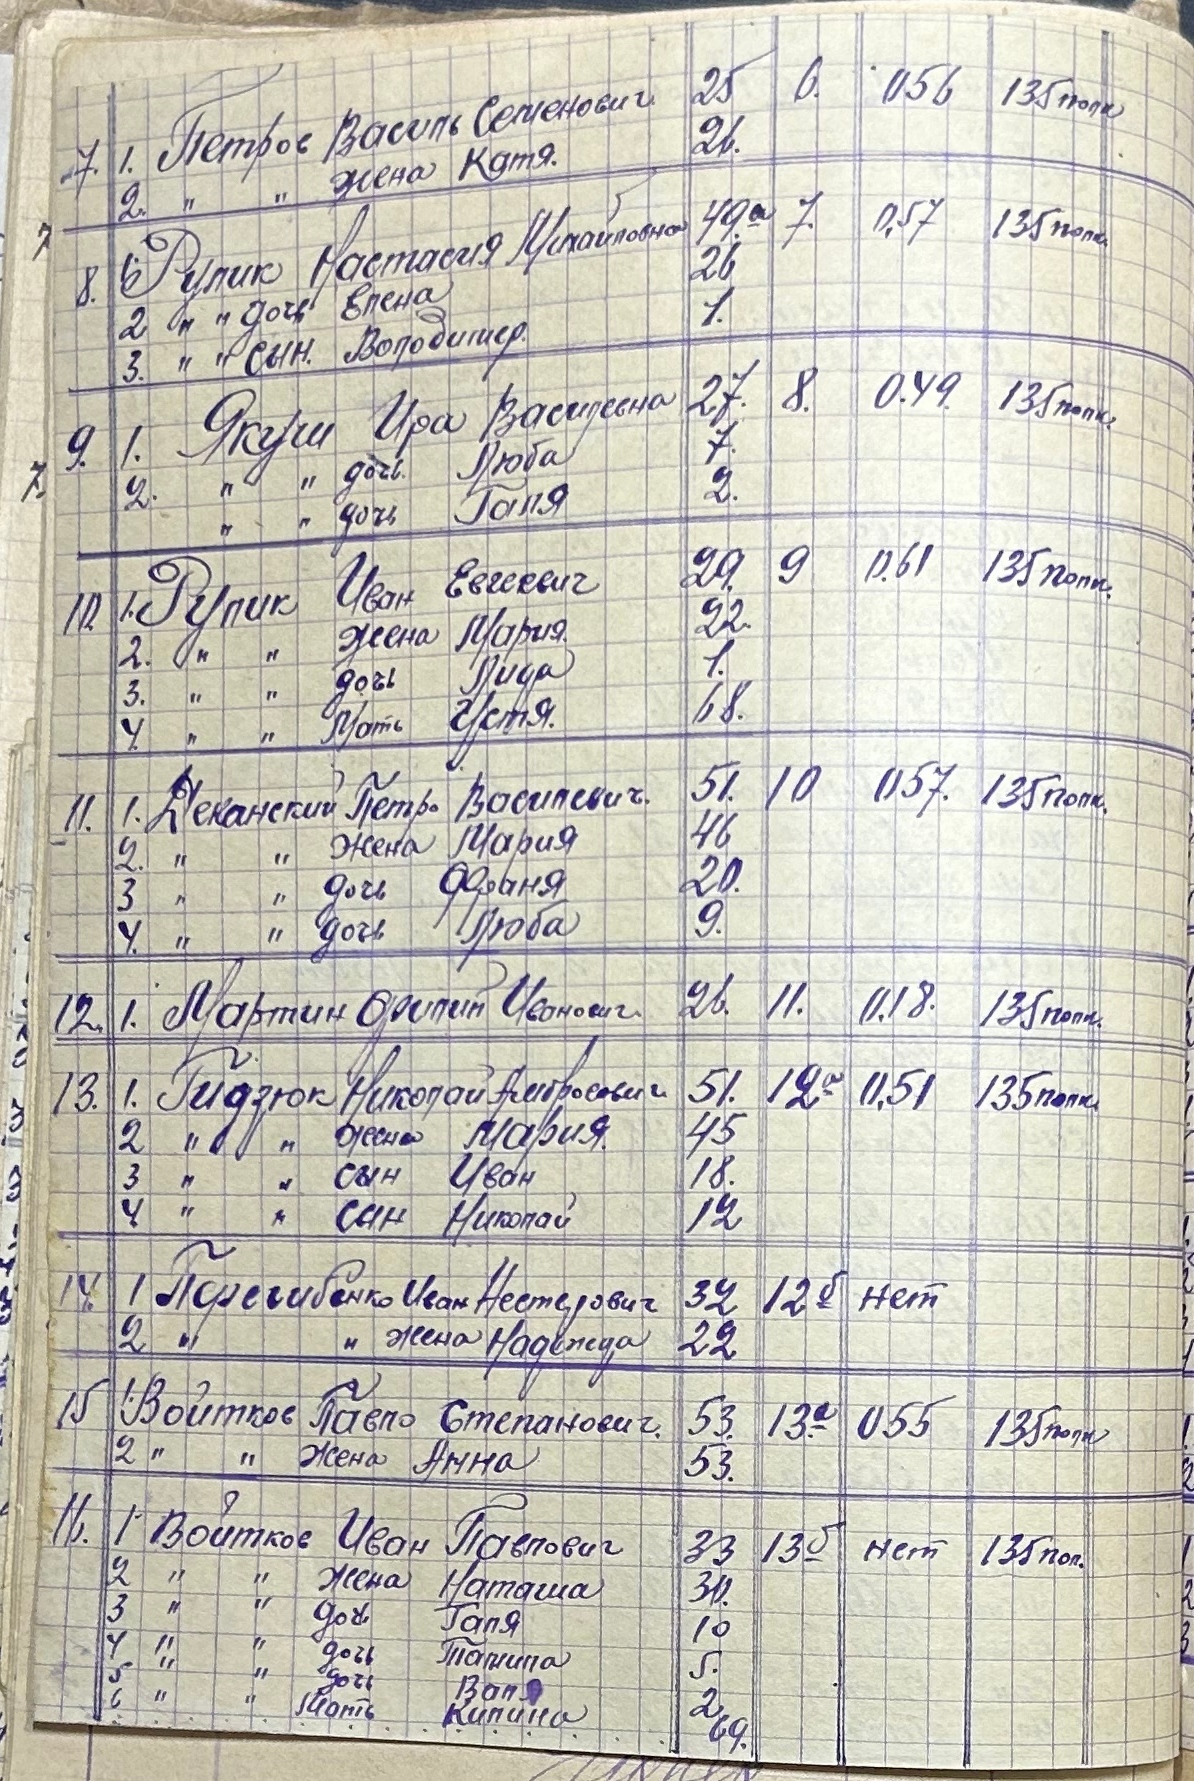 7. 1. Петров Василь Семенович. 25 6. 056 135 полк
2. " " жена Катя. 26.
8. 1. Рулик Настасия Михайловна 49. а 7. 0,57 135 полк.
2 " " дочь Елена 26
3. " " сын. Володимер. 1.
9. 1. Якуш Ира Василевна 27. 8. 0.49. 135 полк.
2. " " дочь. Люба 7.
" " дочь Галя 2.
10. 1. Рулик Иван Евгеевич 29. 9 0.61 135 полк.
2. " " жена Мария. 22.
3. " " дочь Лида 1.
4. " " Мать Устя. 68.
11. 1. Деканский Петро Василевич. 51. 10 057. 135 полк.
2. " " жена Мария 46
3 " " дочь Франя 20.
4. " " дочь Люба 9.
12. 1. Мартин Филип Иванович. 26. 11. 0.18. 135 полк.
13. 1. Гидзюк Николай Амбросович. 51. 12 а 0,51 135 полк.
2 " " жена Мария. 45
3 " " сын Иван 18.
4. " " сын Николай 12
14. 1 Иван Нестерович 32 12 б нет
2 " " жена Надежда 22
15 1. Войтков Павло Степанович. 53. 13 а 055 135 полк
2 " " жена Анна 53.
16. 1. Войтков Иван Павлович 33 13 б нет 135 пол.
2 " " жена Наташа 30.
3 " " дочь Галя 10
4 " " дочь 5.
5 " " дочь Валя 2
6 " " Мать Килина 69.